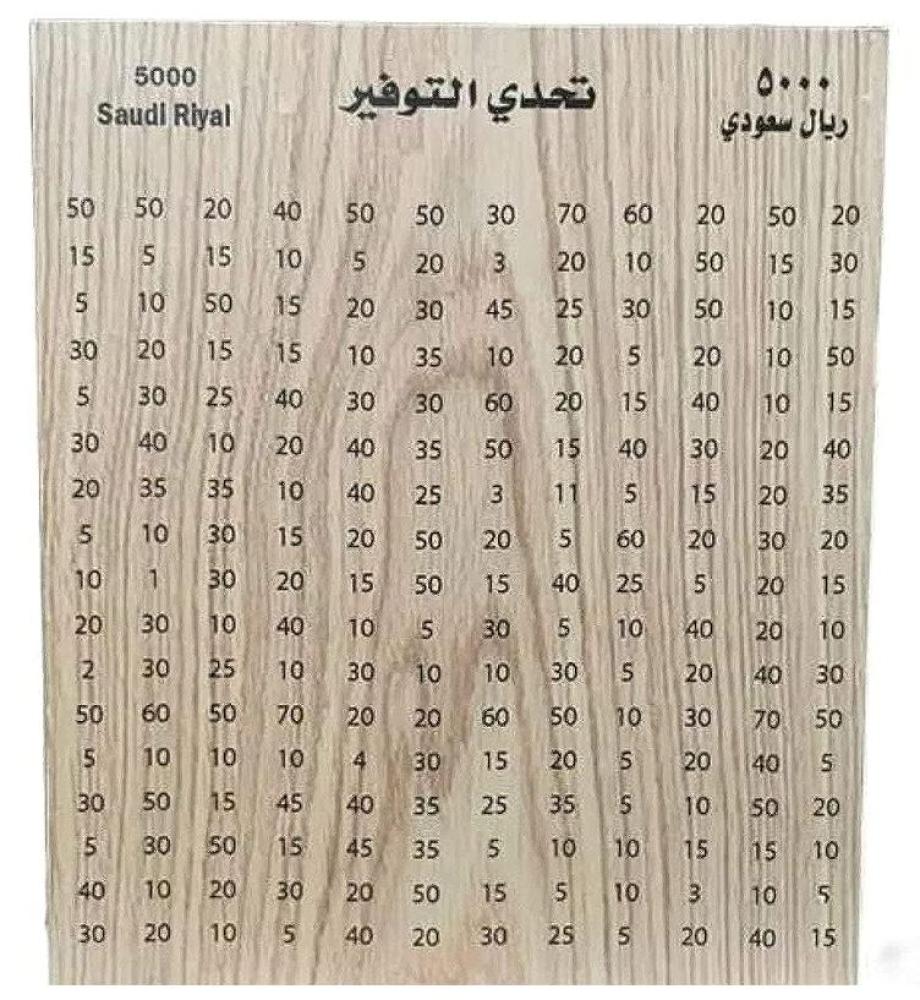 5000 تحدي التوفير ٥٠٠٠
Saudi Riyal ريال سعودي
50 50 20 40 50 50 30 70 60 20 50 20
15 5 15 10 5 20 3 20 10 50 15 30
5 10 50 15 20 30 45 25 30 50 10 15
30 20 15 15 10 35 10 20 5 20 10 50
5 30 25 40 30 30 60 20 15 40 10 15
30 40 10 20 40 35 50 15 40 30 20 40
20 35 35 10 40 25 3 11 5 15 20 35
5 10 30 15 20 50 20 5 60 20 30 20
10 1 30 20 15 50 15 40 25 5 20 15
20 30 10 40 10 5 30 5 10 40 20 10
2 30 25 10 30 10 10 30 5 20 40 30
50 60 50 70 20 20 60 50 10 30 70 50
5 10 10 10 4 30 15 20 5 20 40 5
30 50 15 45 40 35 25 35 5 10 50 20
5 30 50 15 45 35 5 10 10 15 15 10
40 10 20 30 20 50 15 5 10 3 10 5
30 20 10 5 40 20 30 25 5 20 40 15